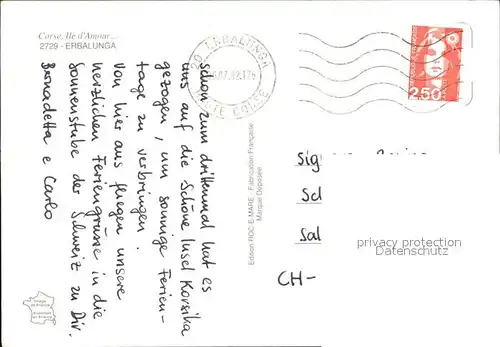 Corse, Ile d'Amour...
2729 - ERBALUNGA
Schon zum drittenmal hat es
uns auf die Schöne Insel Korsika
gezogen, um sonnige Ferien-
tage zu verbringen.
Von hier aus fliegen unsere
herzlichen Feriengrüsse in die
Sonnenstube der Schweiz zu Dir.
Bernadetta e Carlo
Edition ROC E MARE - Fabrication Française
Marque Déposée
ERBALUNGA
HTE CORSE
2,50
Sig
Sal
CH-
privacy protection
Datenschutz